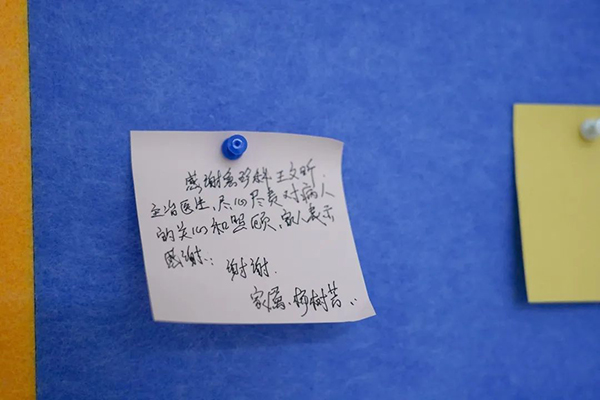 感谢急诊科王文昕、
主治医生,尽心尽责对病人
的关心和照顾,家人表示
感谢:
谢谢.
家属:柳树芸